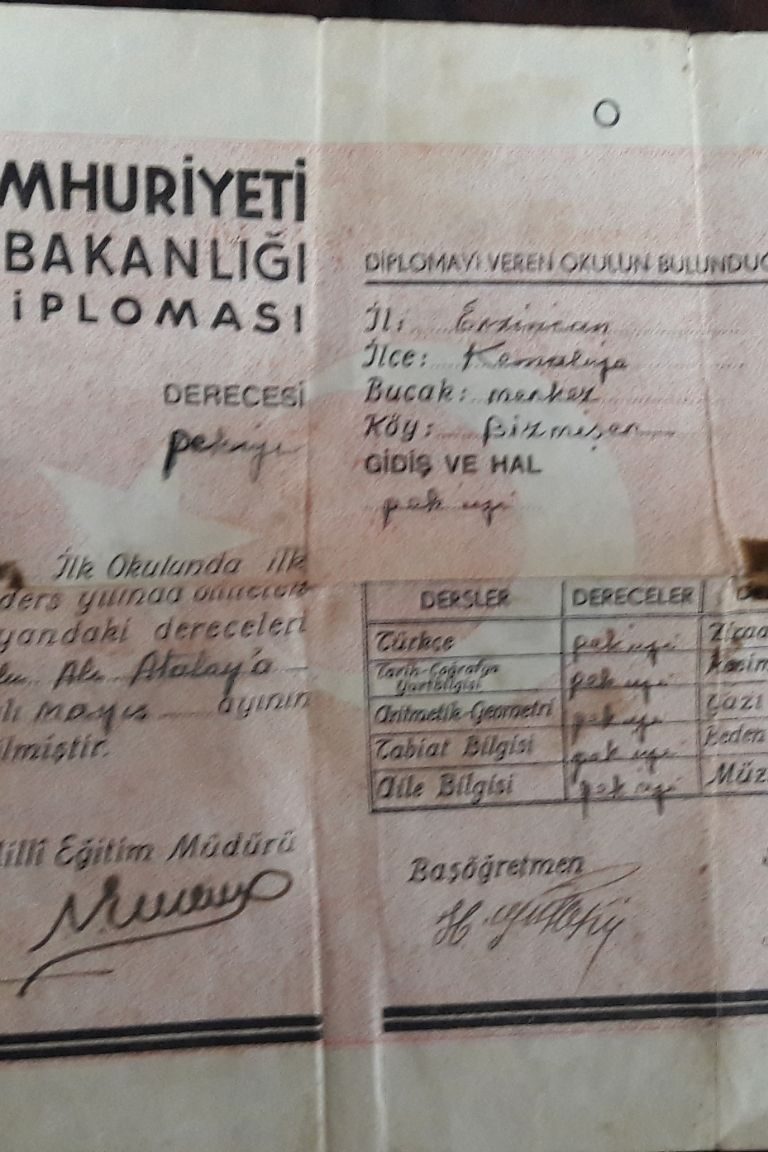 MHURİYETİ
BAKANLIĞI
İPLOMASI
DERECESİ
pekiyi
İlk Okulunda ilk
ders yılında
yandaki dereceleri
Ali Atalay'a
mayıs ayının
ilmiştir.
illî Eğitim Müdürü
O
DİPLOMAYI VEREN OKULUN BULUNDUĞ
İli Erzincan
İlçe: Kemaliye
Bucak: merkez
Köy: Bizmişen
GİDİŞ VE HAL
pek iyi
DERSLER DERECELER
Türkçe pek iyi Ziraa
Tarih-Coğrafya Yurtbilgisi pek iyi Resim
Aritmetik-Geometri pek iyi Yazı
Tabiat Bilgisi pek iyi Beden
Aile Bilgisi pek iyi Müz
Başöğretmen